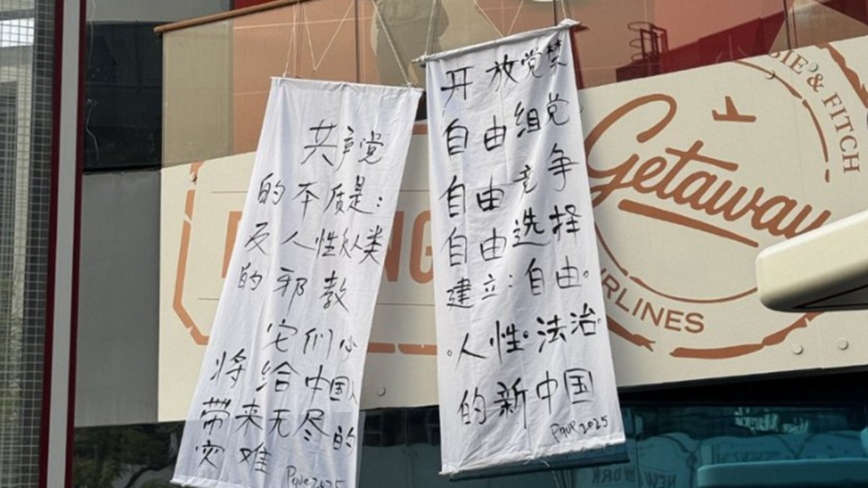 共产党
的本质是：
反人性从人类
的邪教
它们必
将给中国人
带来无尽的
灾难
Pque 2025
开放党禁
自由组党
自由竞争
自由选择
建立：自由。
。人性。法治。
的新中国
Pque 2025
Getaway
& FITCH
RLINES
NG